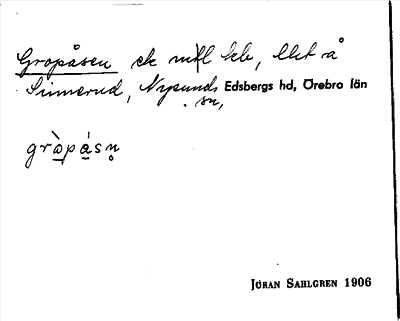 Gropåsen
Sinnerud, Nysunds Edsbergs hd, Örebro län
sn,
gròpásn̥
JÖRAN SAHLGREN 1906